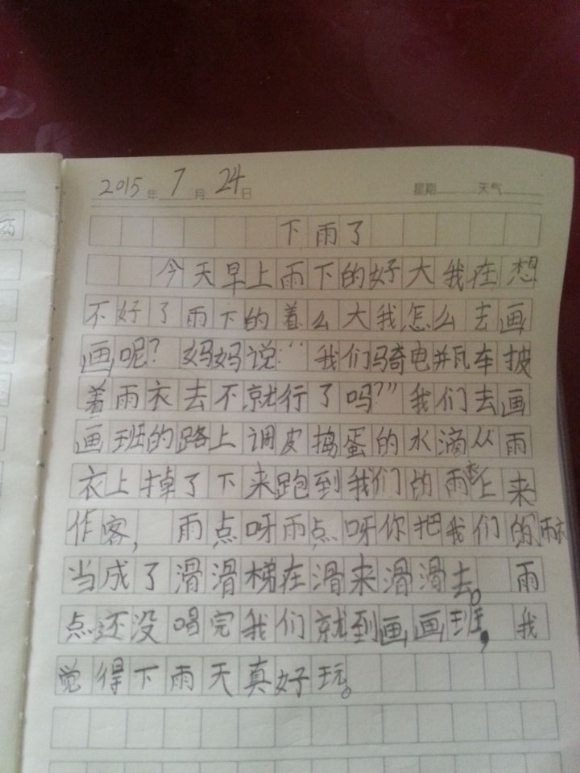 2015年7月24日 星期 天气
下雨了
今天早上雨下的好大我在想
不好了雨下的着么大我怎么去画
画呢？妈妈说“我们骑电瓶车披
着雨衣去不就行了吗?”我们去画
画班的路上调皮捣蛋的水滴从雨
衣上掉了下来跑到我们的雨衣上来
作客，雨点呀雨点呀你把我们的
当成了滑滑梯在滑来滑滑去。雨
点还没唱完我们就到画画班，我
觉得下雨天真好玩。